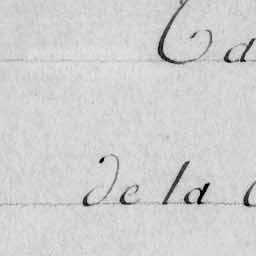 Ta
de la